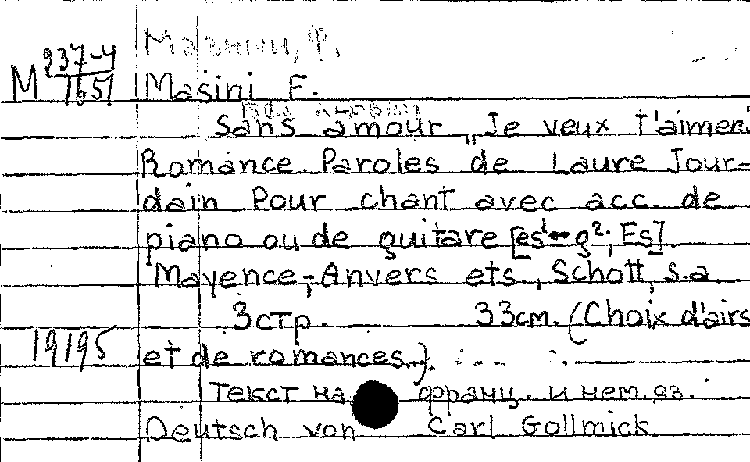 Мазини, Ф.
М 237-4
1651
Masini F.
Без любви
Sans amour „Je veux t'aimer.
Romance Paroles de Laure Jour-
dain Pour chant avec acc. de
piano ou de guitare [es¹-g²; Es].
Mayence-; Anvers ets, Schott, s.a.
3стр. 33см. (Choix d'airs
19195
et de romances.).
Текст на франц. и нем. яз.
Deutsch von Carl Gollmick